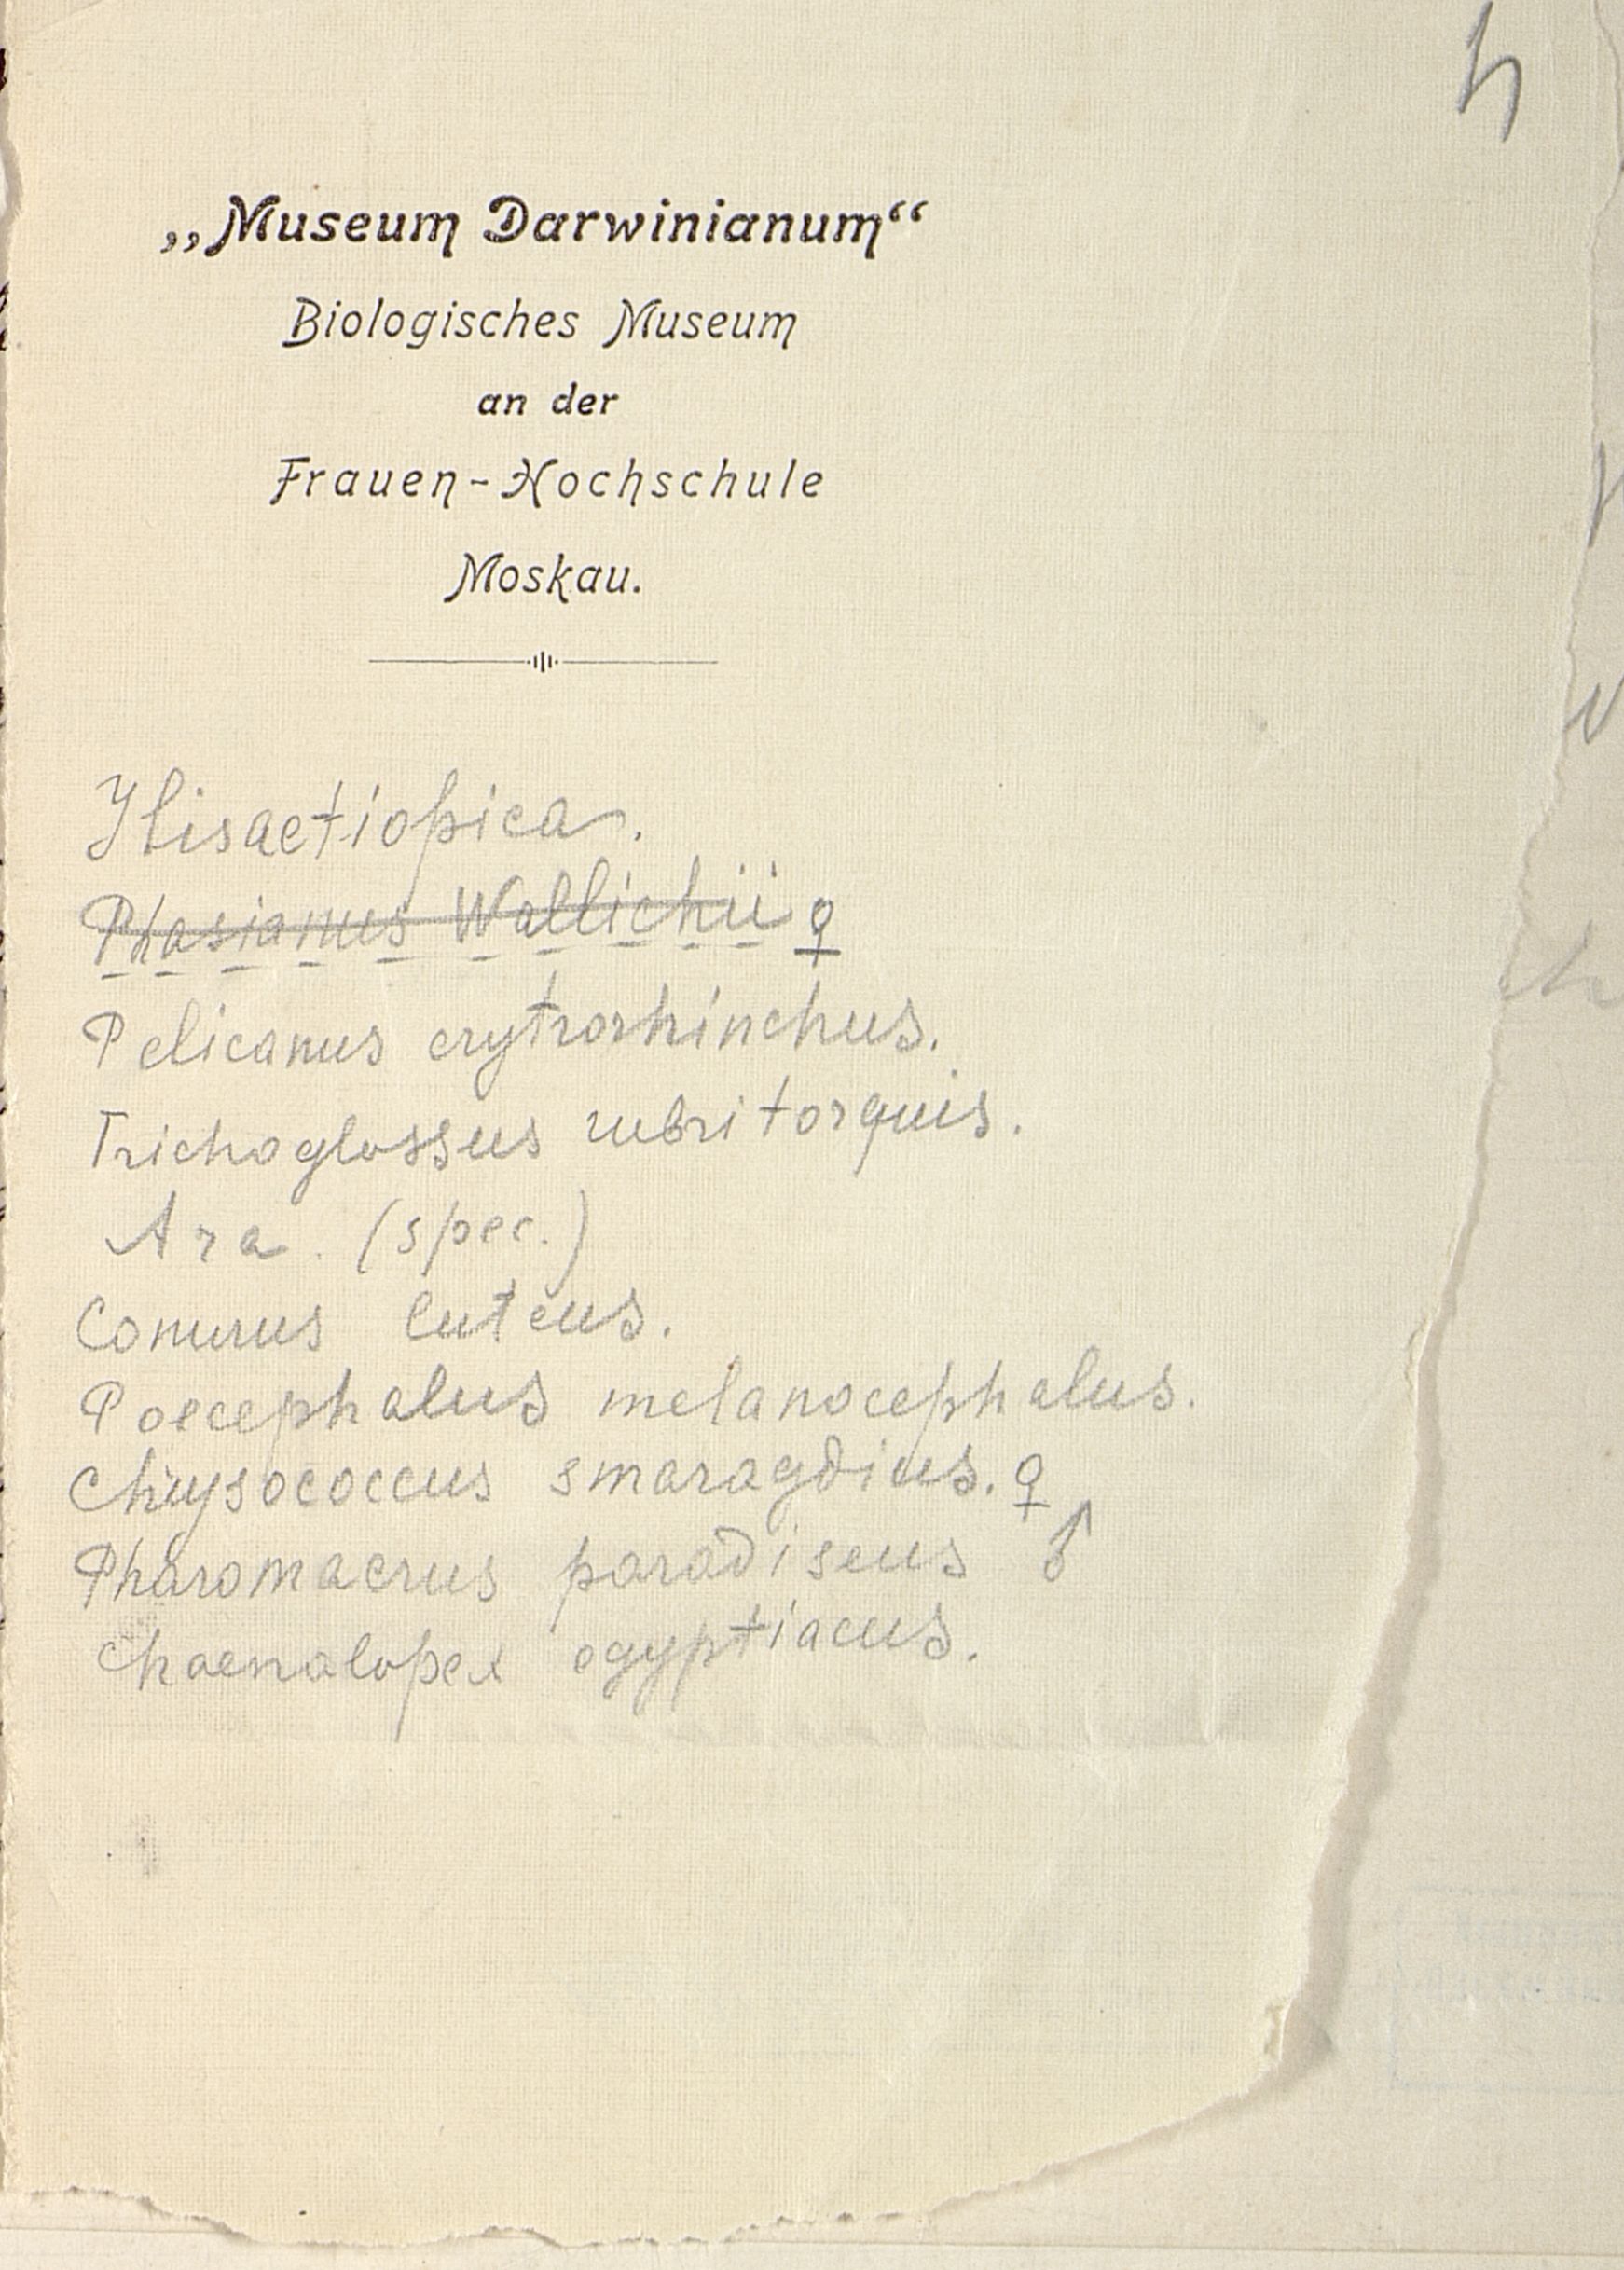 4
„Museum Darwinianum“
Biologisches Museum
an der
Frauen-Hochschule
Moskau.
Ibisaetiopica.
Phasianus Wallichii ♀
Pelicanus erytrorhinchus.
Trichoglossus rubritorquis.
Ara. (spec.)
Conurus luteus.
Poecephalus melanocephalus.
Chrysococcus smaragdicus. ♀
Pharomacrus paradiseus ♂
Chaenalopex egyptiacus.